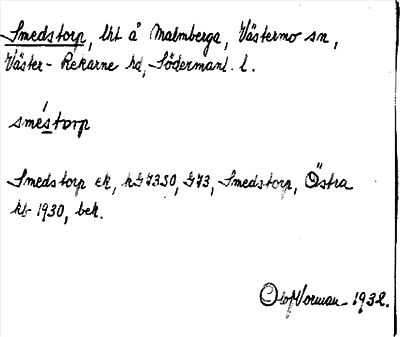 Smedstorp, lht å Malmberga, Västermo sn,
Väster-Rekarne hd, Södermanl. l.
smés torp
Smedstorp ek, kG7350, G73, Smedstorp, Östra
kb 1930, bek.
Olof Norman 1932.